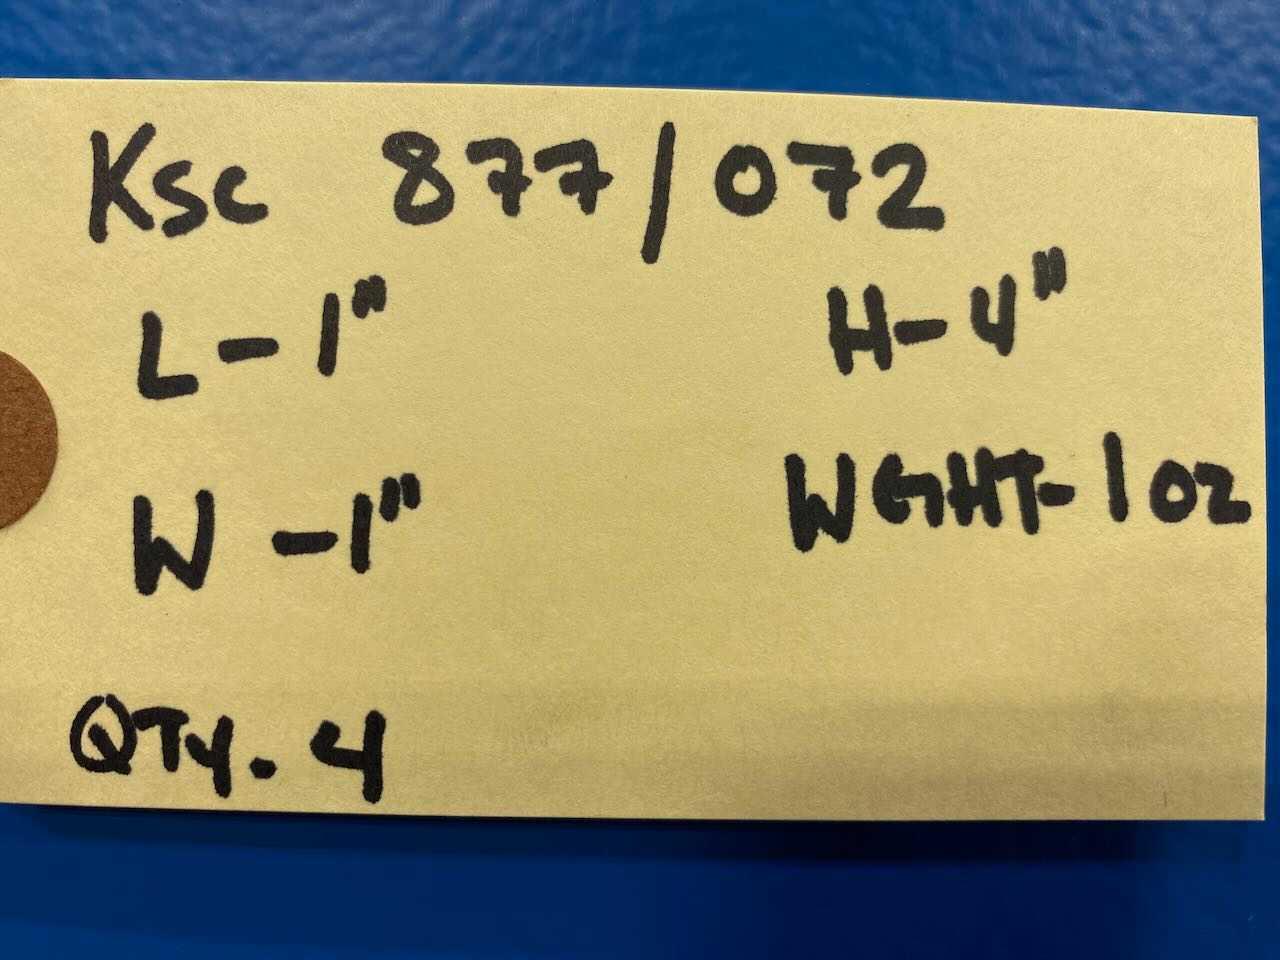 Ksc 877/072
L-1" H-4"
W-1" WGHT-1oz
QTY. 4